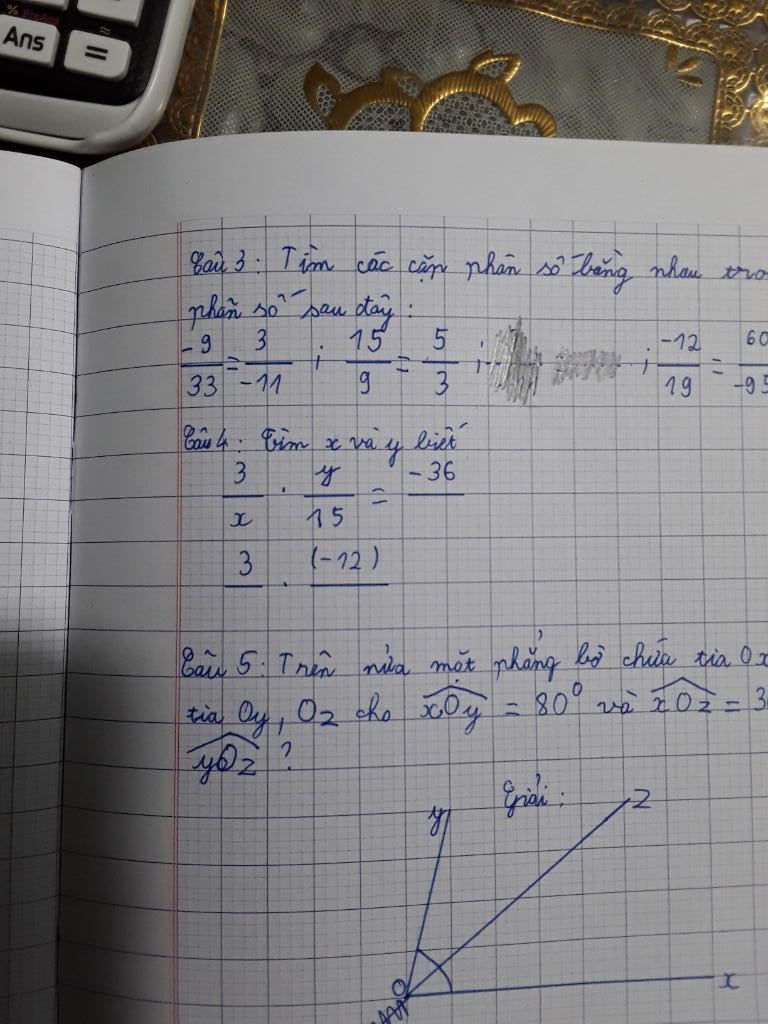 % PreAns ≈
Ans =
Câu 3: Tìm các cặp phân số bằng nhau tro
phân số sau đây:
-9/33 = 3/-11 ; 15/9 = 5/3 ; ; -12/19 = 60/-95
Câu 4: Tìm x và y biết
3/x . y/15 = -36
3 . (-12)
Câu 5: Trên nửa mặt phẳng bờ chứa tia Ox
tia Oy, Oz cho xOy = 80° và xOz = 3
yOz ?
Giải:
y z
O x